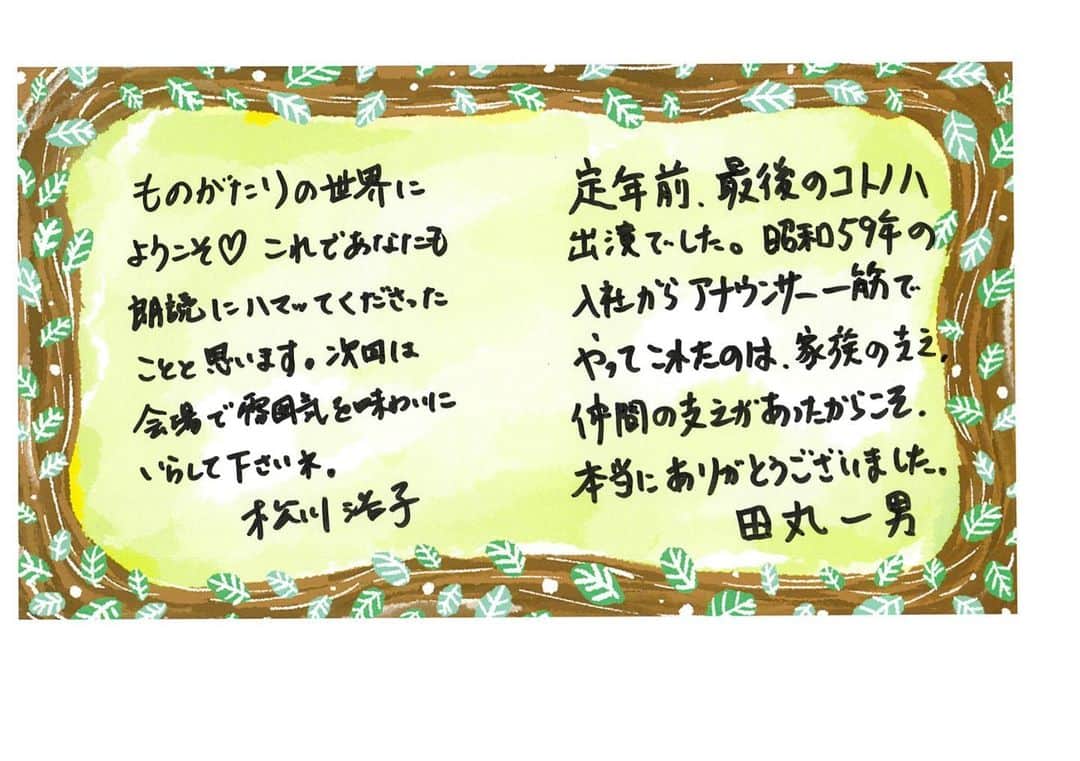 ものがたりの世界に
ようこそ♡ これであなたも
朗読にハマッてくださった
ことと思います。次回は
会場で雰囲気を味わいに
いらして下さいネ。
松川浩子
定年前、最後のコトノハ
出演でした。昭和59年の
入社からアナウンサー一筋で
やってこれたのは、家族の支え、
仲間の支えがあったからこそ。
本当にありがとうございました。
田丸一男